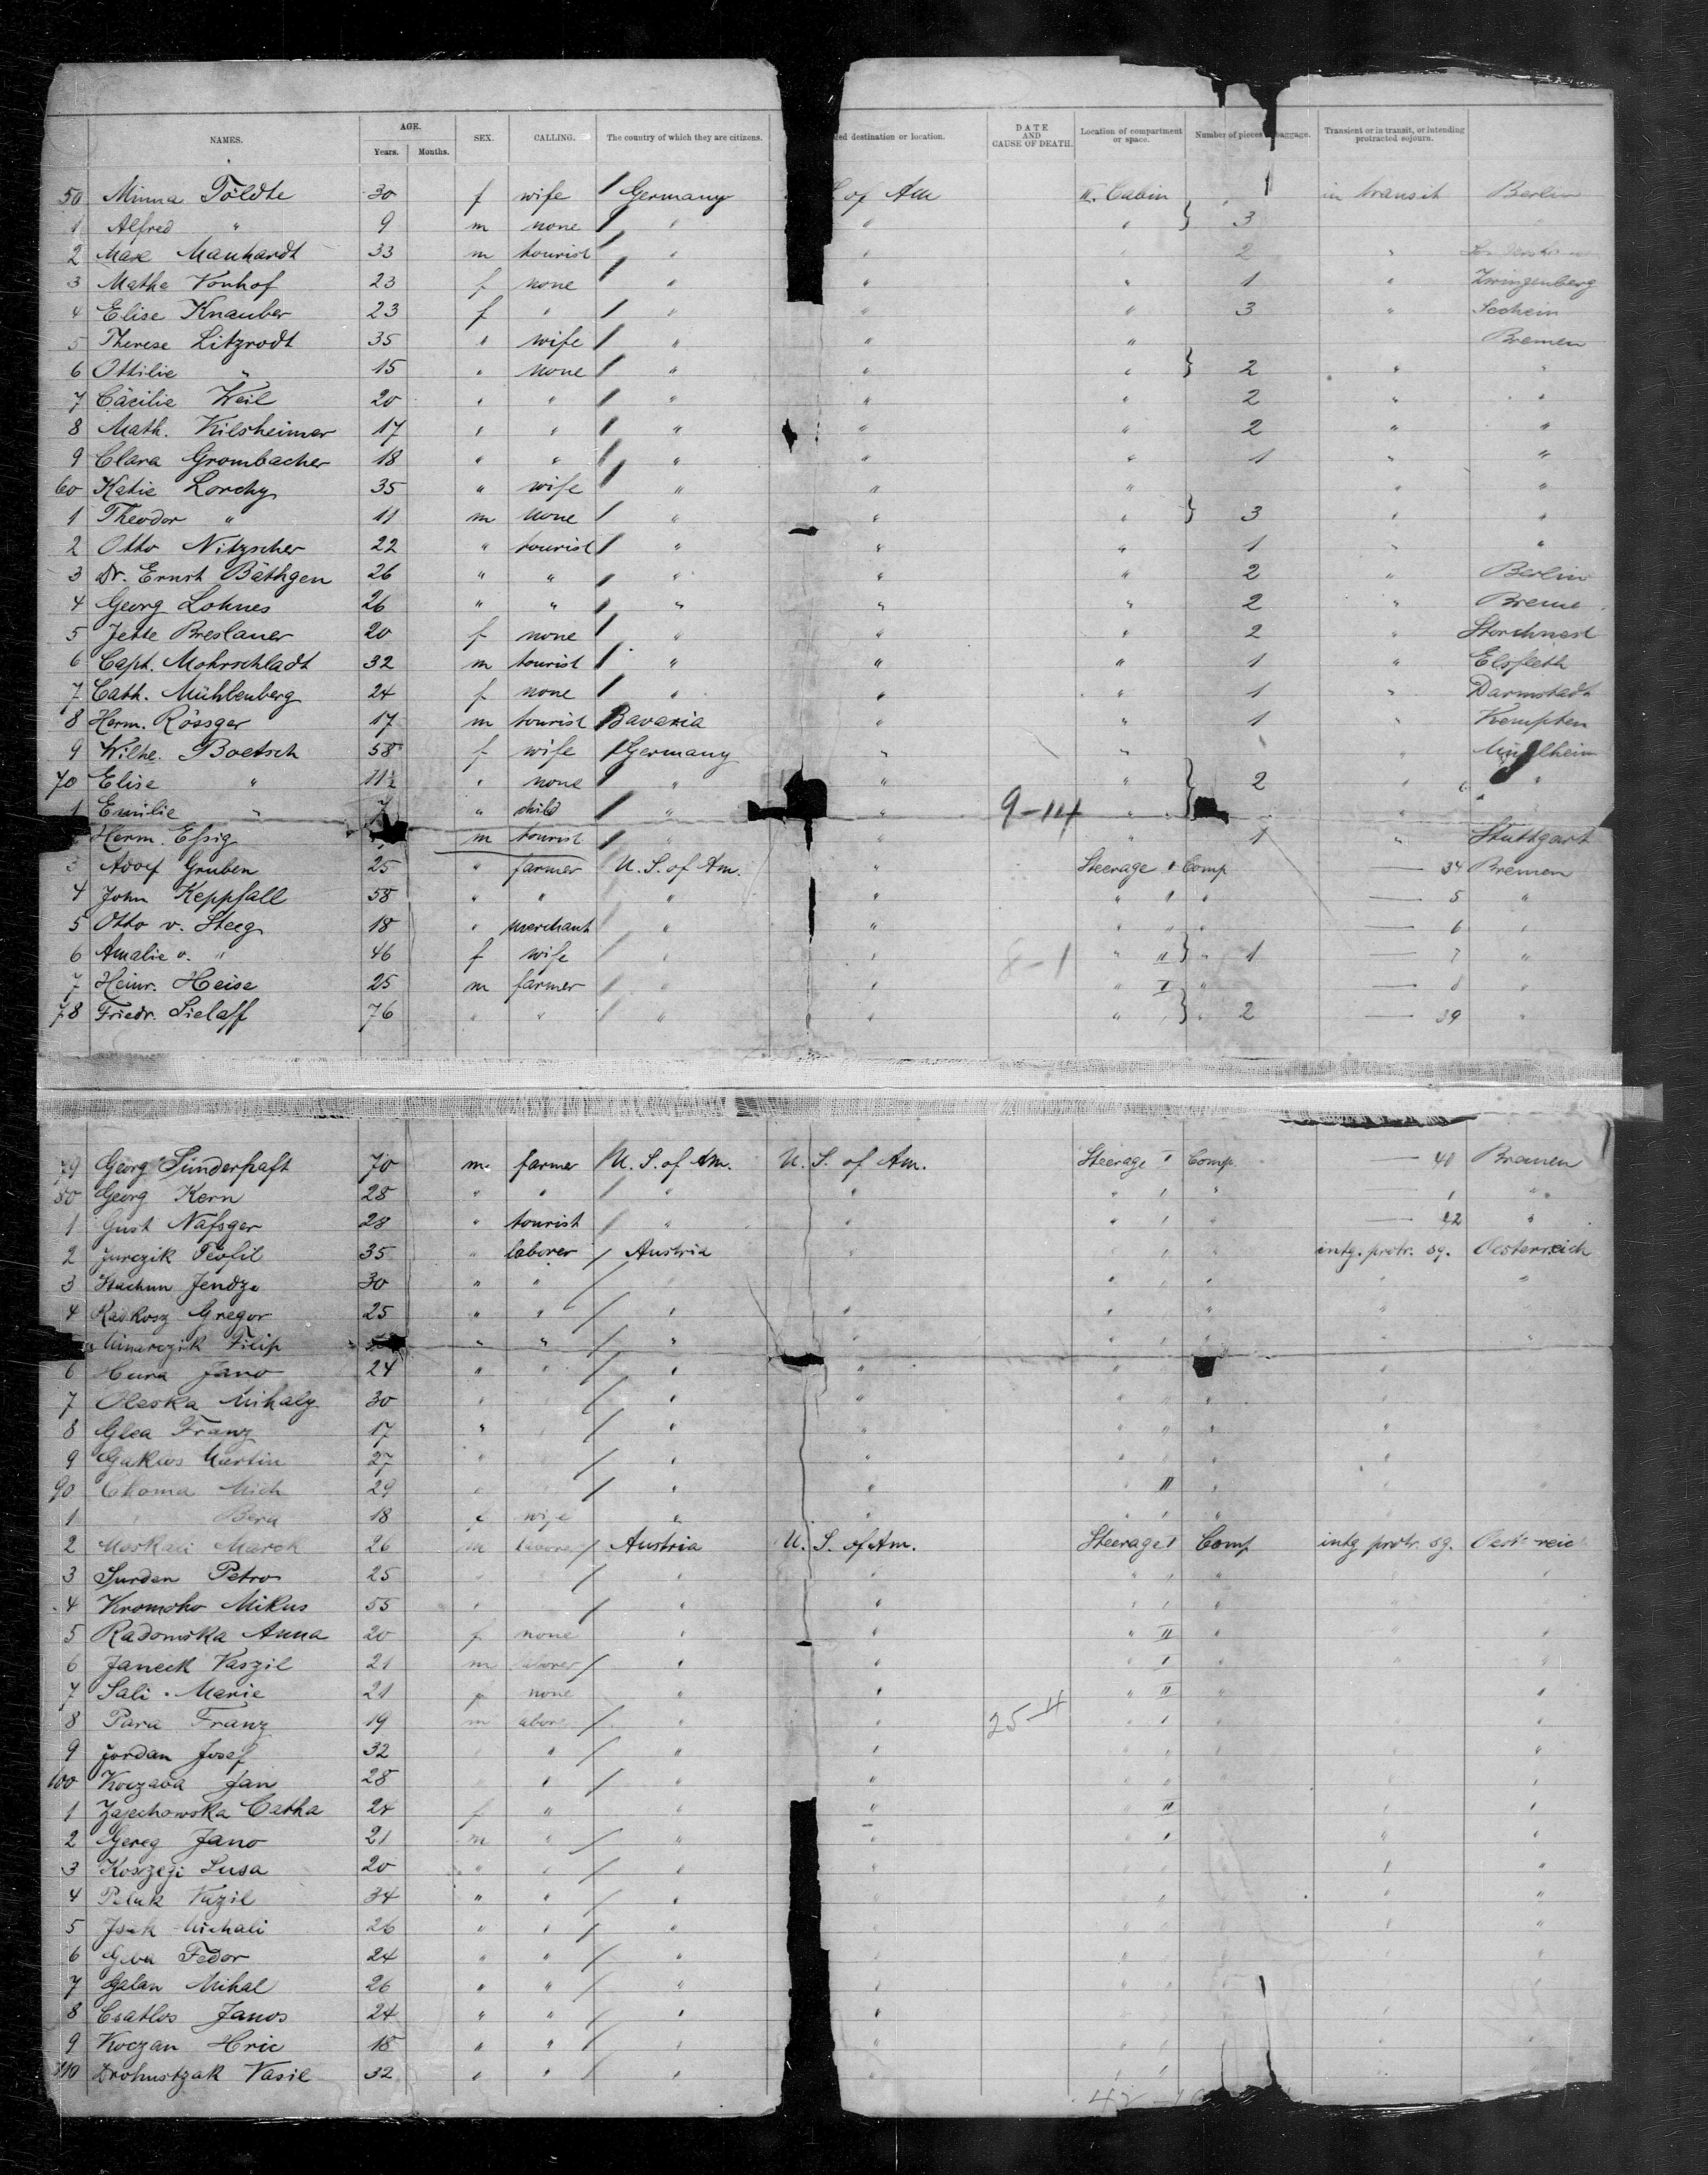 NAMES. AGE. Years. Months. SEX. CALLING. The country of which they are citizens. destination or location. DATE AND CAUSE OF DEATH. Location of compartment or space. Number of pieces baggage. Transient or in transit, or intending protracted sojourn.
50 Minna Töldte 30 f wife Germany of Am II. Cabin in transit Berlin
1 Alfred " 9 m none " " " } 3
2 Max Manhardt 33 m tourist " " " 2 "
3 Mathe Vonhof 23 f none " " " 1 " Zwingenberg
4 Elise Knauber 23 f " " " " 3 " Sechein
5 Therese Litzrodt 35 " wife " " " Bremen
6 Ottilie " 15 " none " " " } 2 " "
7 Cäcilie Weil 20 " " " " " 2 " "
8 Math. Kilsheimer 17 " " " " " 2 " "
9 Clara Grombacher 18 " " " " " 1 " "
60 Katie Lorchy 35 " wife " " " " "
1 Theodor " 11 m none " " " } 3 " "
2 Otto Nitzscher 22 " tourist " " " 1 " "
3 Dr. Ernst Bäthgen 26 " " " " " 2 " Berlin
4 Georg Lohnes 26 " " " " " 2 " Breme
5 Jette Breslauer 20 f none " " " 2 " Storchnest
6 Capt. Mohrschladt 32 m tourist " " " 1 " Elsfleth
7 Cath. Mühlenberg 24 f none " " " 1 " Darmstadt
8 Herm. Rössger 17 m tourist Bavaria " " 1 " Kempten
9 Wilhe. Boetsch 58 f wife Germany " " "
70 Elise " 11½ " none " " " } 2 " "
1 Emilie " 7 " child " " 9-14 " "
Herm. Essig m tourist " " " 1 " Stuttgart
3 Adolf Gruben 25 " farmer U. S. of Am. " Steerage I Comp — 34 Bremen
4 John Keppfall 58 " " " " " I " — 5 "
5 Otto v. Steeg 18 " merchant " " " " " — 6 "
6 Amalie v. " 46 f wife " " 8-1 " II } " 1 — 7 "
7 Heinr. Heise 25 m farmer " " " I " — 8 "
78 Friedr. Sielaff 76 " " " " " " } " 2 — 39 "
79 Georg Sünderhaft 70 m. farmer U. S. of Am. U. S. of Am. Steerage I Comp — 40 Bremen
80 Georg Kern 28 " " " " " " " — 1 "
1 Gust Nafsger 28 " tourist " " " " " — 42 "
2 Jurczik Teofil 35 " laborer Austria " " " " intg. protr. sg. Oesterreich
3 Jendze 30 " " " " " " "
4 Radkosz Gregor 25 " " " " " " "
Filip " " " " " " " " "
6 Hura Jano 24 " " " " " "
7 Oleska Mihaly 30 " " " " " "
8 Glea Franz 17 " " " " " " "
9 Gaklos Martin 27 " " " " " " "
90 Choma Mich 29 " " " II " "
1 " Bera 18 f wife " " " " " "
2 Moskali March 26 m laborer Austria U. S. of Am. Steerage I Comp intg protr. sg.
3 Surden Petro 25 " " " " " " "
4 Kromoho Mikus 55 " " " " " " "
5 Radomska Anna 20 f none " " " II " " "
6 Janeck Vaszil 21 m laborer " " " I " "
7 Sali Marie 21 f none " " " II " "
8 Para Franz 19 m labore " " 25-4 " I " "
9 Jordan Josef 32 " " " " " " "
100 Koczaba Jan 28 " " " " " " "
1 Zajechowska Catha 24 f " " " " II " "
2 Gereg Jano 21 m " " " I " "
3 Koszegi Susa 20 " " " " " "
4 Peluk Vazil 34 " " " " " " "
5 Isak Michali 26 " " " " " "
6 Geba Fedor 24 " " " " " "
7 Galan Mihal 26 " " " " " "
8 Csatlos Janos 24 " " " " "
9 Koczan Hric 18 " " " " " "
110 Drohustzak Vasil 32 " " " " " "